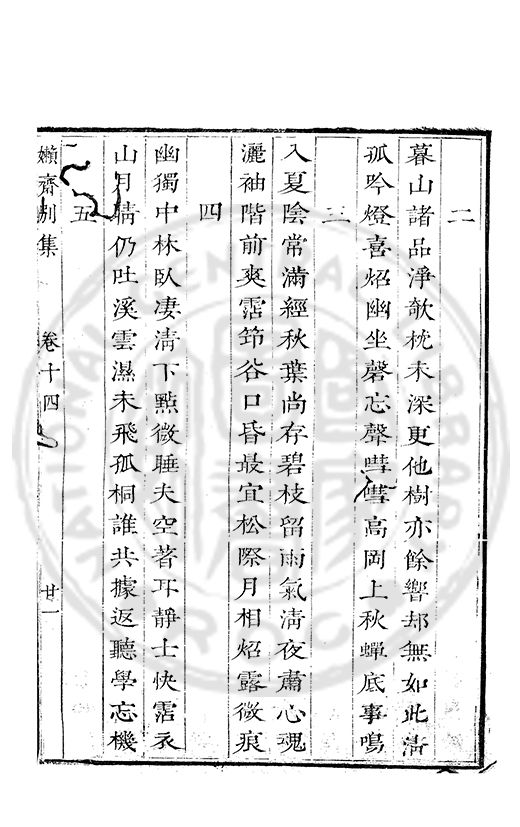 二
暮山諸品淨欹枕未深更他樹亦餘響却無如此淸
孤吟燈喜炤幽坐磬忘聲嘒嘒高岡上秋蟬底事鳴
三
入夏陰常滿經秋葉尚存碧枝留雨氣淸夜肅心魂
灑袖階前爽霑筇谷口昏最宜松際月相炤露微痕
四
幽獨中林臥凄淸下點微睡夫空著耳靜士快霑衣
山月晴仍吐溪雲濕未飛孤桐誰共據返聽學忘機
五
嬾齋別集
卷十四
廿一